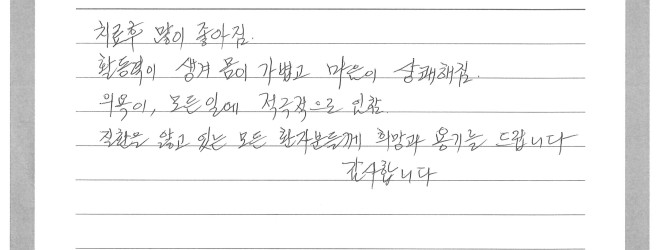 치료후 많이 좋아짐.
활동력이 생겨 몸이 가볍고 마음이 상쾌해짐.
의욕이, 모든일에 적극적으로 임함.
질환을 앓고 있는 모든 환자분들께 희망과 용기를 드립니다
감사합니다